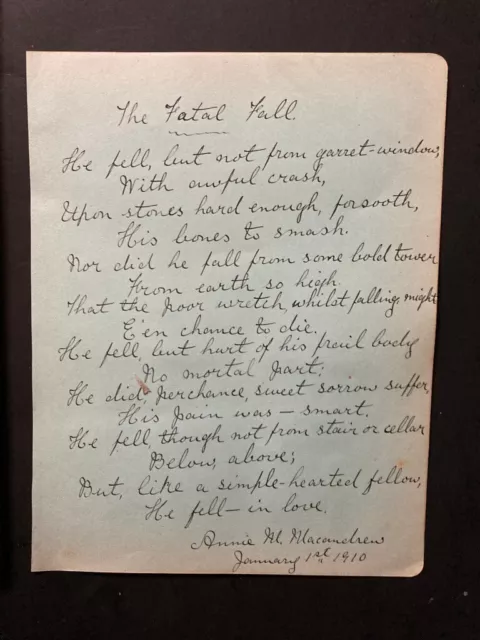 The Fatal Fall.
He fell, but not from garret-window,
With awful crash,
Upon stones hard enough, forsooth,
His bones to smash.
Nor did he fall from some bold tower
From earth so high.
That the poor wretch, whilst falling, might
E'en chance to die.
He fell, but hurt of his frail body
No mortal part;
He did, perchance, sweet sorrow suffer,
His pain was – smart.
He fell, though not from stair or cellar
Below, above;
But, like a simple-hearted fellow,
He fell – in love.
Annie M. Macandrew
January 1st 1910